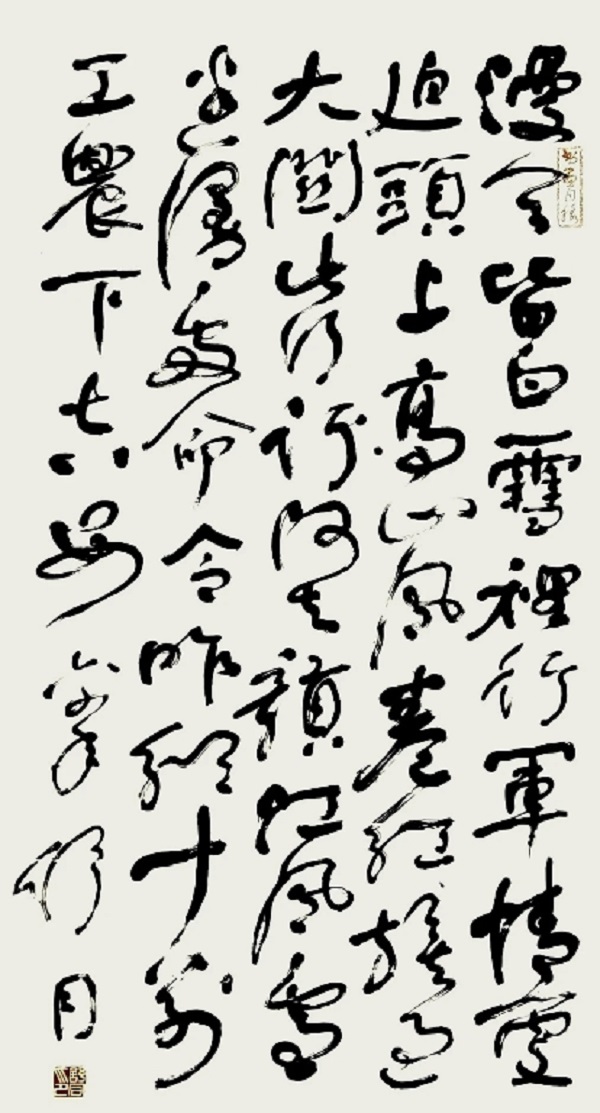 漫天皆白雪裡行軍情更
迫頭上高山風卷紅旗過
大關此行何去贛江風雪
迷漫處命令昨頒十萬
工農下吉安